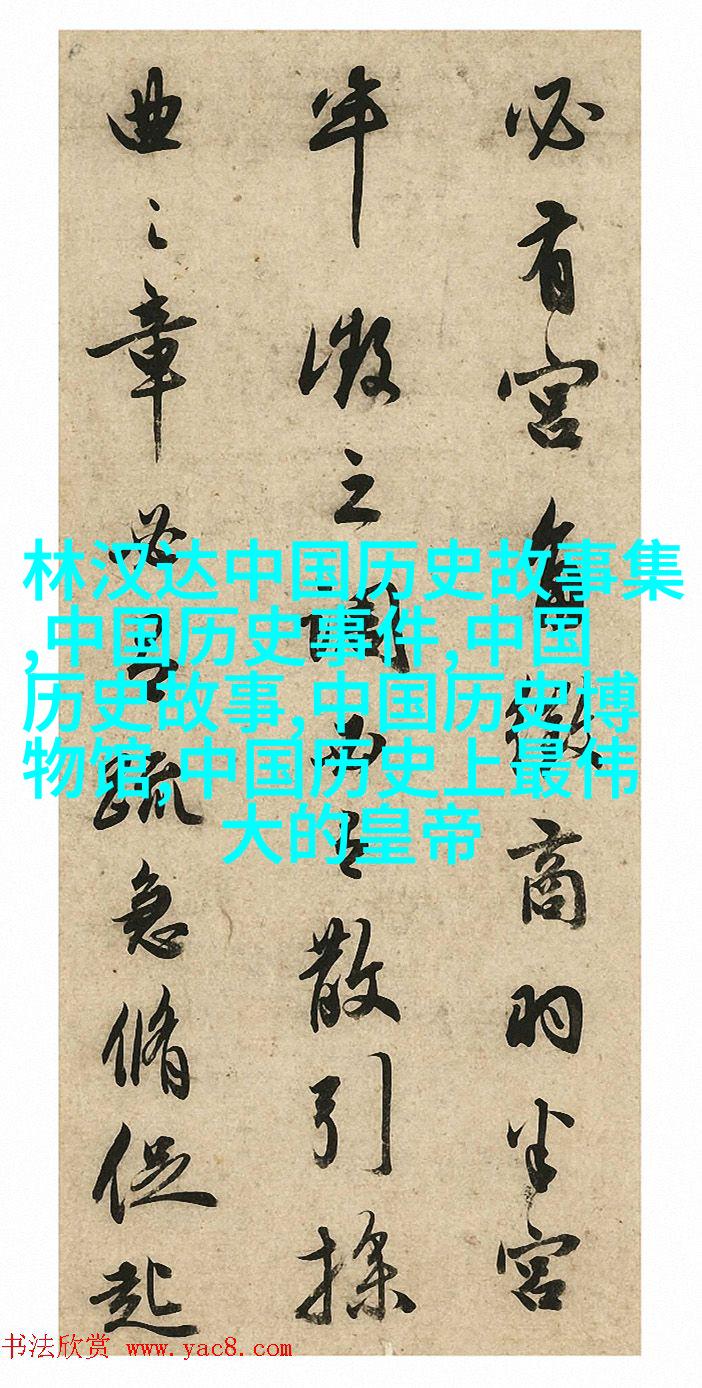 必有宫角徵商羽半宫
半徵之調必有散引操
曲之章必有疏急脩促起
林汉达中国历史故事集
,中国历史事件,中国
历史故事,中国历史博
物馆,中国历史上最伟
大的皇帝
书法欣赏 www.yac8.com